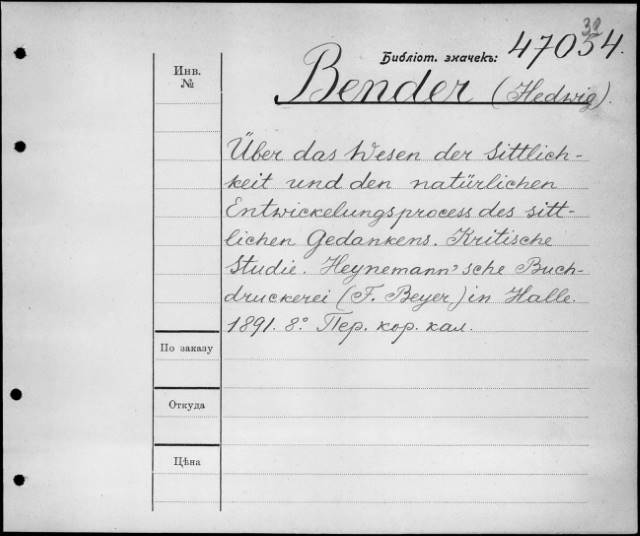 32
Библіот. значекъ: 47054.
Инв.
№
Bender (Hedwig).
Über das Wesen der Sittlich-
keit und den natürlichen
Entwickelungsprocess des sitt-
lichen Gedankens. Kritische
Studie. Heynemann'sche Buch-
druckerei (F. Beyer) in Halle.
1891. 8.° Пер. кор. кал.
По заказу
Откуда
Цѣна